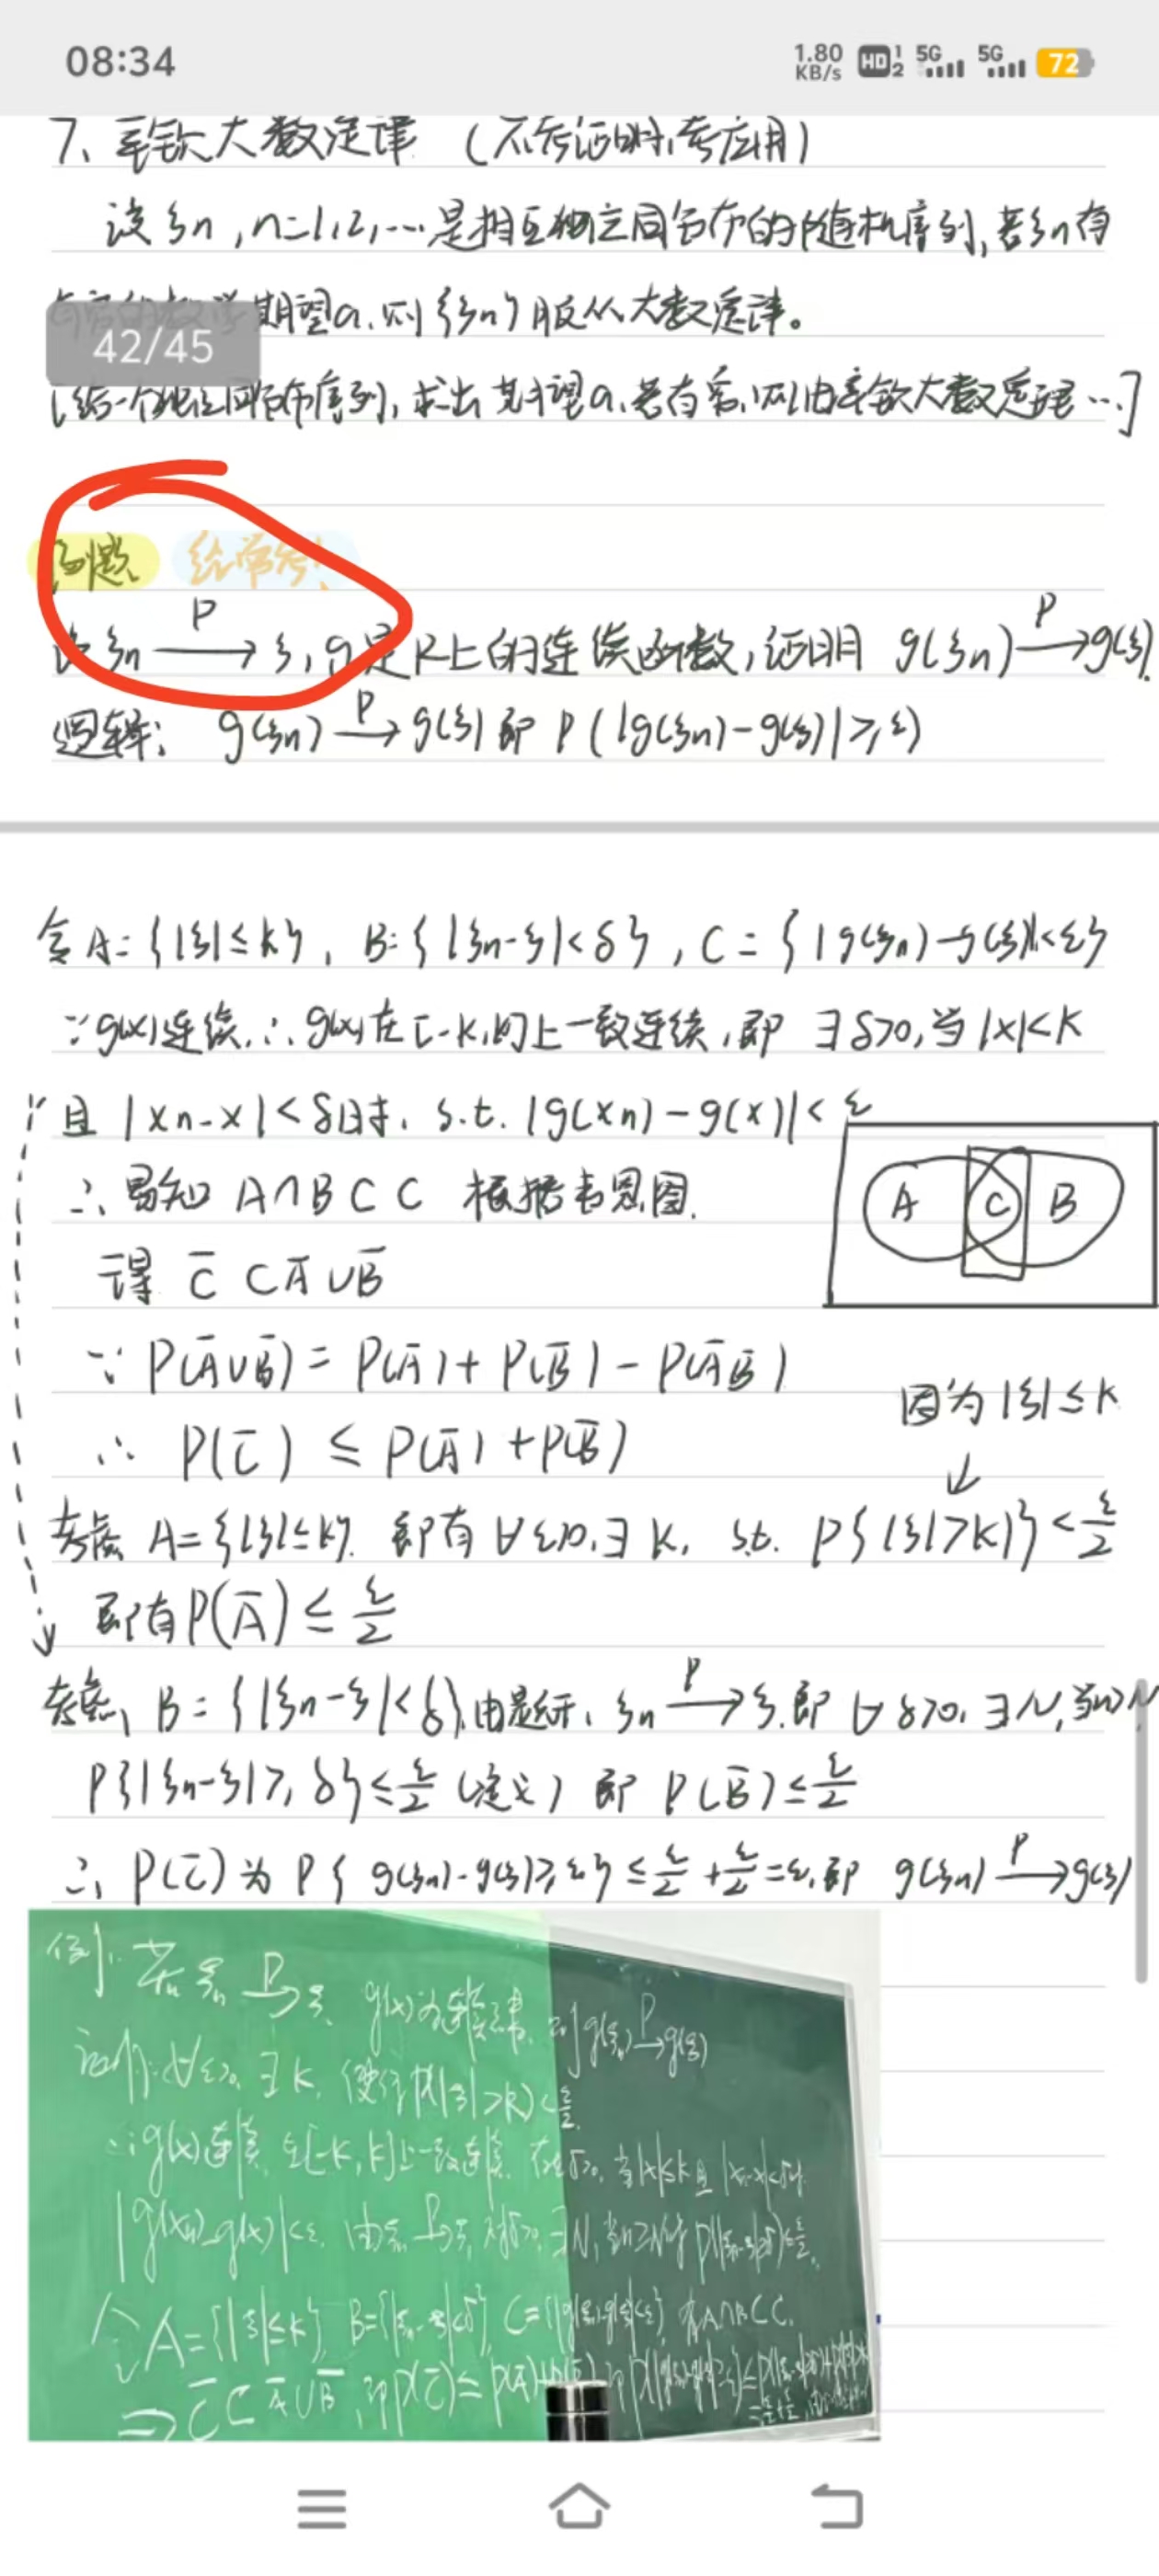 08:34
1.80 KB/s HD 1 2 5G 5G 72
7、辛钦大数定律（不考证明,考应用）
设ξn,n=1,2,…是相互独立同分布的随机序列,若ξn有
有穷的数学期望a,则{ξn}服从大数定律。
42/45
[给一个独立同分布序列,求出期望a,若有穷,则由辛钦大数定理…]
例题 经常考!
设ξn —P→ ξ,g是R上的连续函数,证明 g(ξn) —P→ g(ξ).
逻辑: g(ξn) —P→ g(ξ) 即 P(|g(ξn)-g(ξ)|≥ε)
令A={|ξ|≤k}, B={|ξn-ξ|<δ}, C={|g(ξn)-g(ξ)|<ε}
∵g(x)连续,∴g(x)在[-K,K]上一致连续,即 ∃δ>0,当|x|<K
且|xn-x|<δ时, s.t. |g(xn)-g(x)|<ε
∴易知 A∩B⊂C 根据韦恩图.
A C B
得 C̄⊂Ā∪B̄
∵ P(Ā∪B̄)=P(Ā)+P(B̄)-P(ĀB̄)
因为|ξ|≤k
∴ P(C̄)≤P(Ā)+P(B̄)
↓
考察 A={|ξ|≤k}. 即有∀ε>0,∃K, s.t. P{|ξ|>K)}<ε/2
即有P(Ā)≤ε/2
考察, B={|ξn-ξ|<δ},由题干, ξn —P→ ξ.即 ∀δ>0,∃N,当n>N,
P{|ξn-ξ|≥δ}≤ε/2 (定义) 即 P(B̄)≤ε/2
∴ P(C̄)为P{g(ξn)-g(ξ)≥ε}≤ε/2+ε/2=ε,即 g(ξn) —P→ g(ξ)
例. 若ξn —P→ ξ, g(x)为连续函数, 则g(ξn) —P→ g(ξ)
证明:∀ε>0, ∃K, 使得P(|ξ|>K)<ε/2.
∵g(x)连续, 在[-K,K]上一致连续, 存在δ>0, 当|x|≤K且|xn-x|<δ时
|g(xn)-g(x)|<ε, 由ξn —P→ ξ, 对δ>0, ∃N, 当n≥N时 P(|ξn-ξ|≥δ)≤ε/2.
令A={|ξ|≤K}, B={|ξn-ξ|<δ}, C={|g(ξn)-g(ξ)|<ε}, 有A∩B⊂C.
⇒ C̄⊂Ā∪B̄, 即P(C̄)≤P(Ā)+P(B̄)